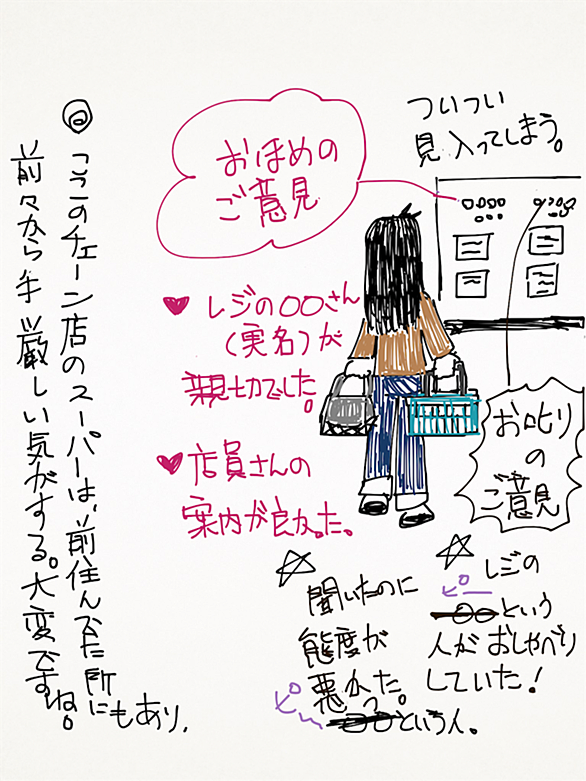 ついつい
見入ってしまう。
おほめの
ご意見
♥レジの〇〇さん
(実名)が
親切でした。
♥店員さんの
案内が良かった。
お叱り
の
ご意見
☆レジの
ピー
〇〇という
人がおしゃべり
していた!
☆
聞いたのに
態度が
悪かった。
ピー
〇〇という人。
◎ここのチェーン店のスーパーは、前住んでた所にもあり、
前々から手厳しい気がする。大変ですね。